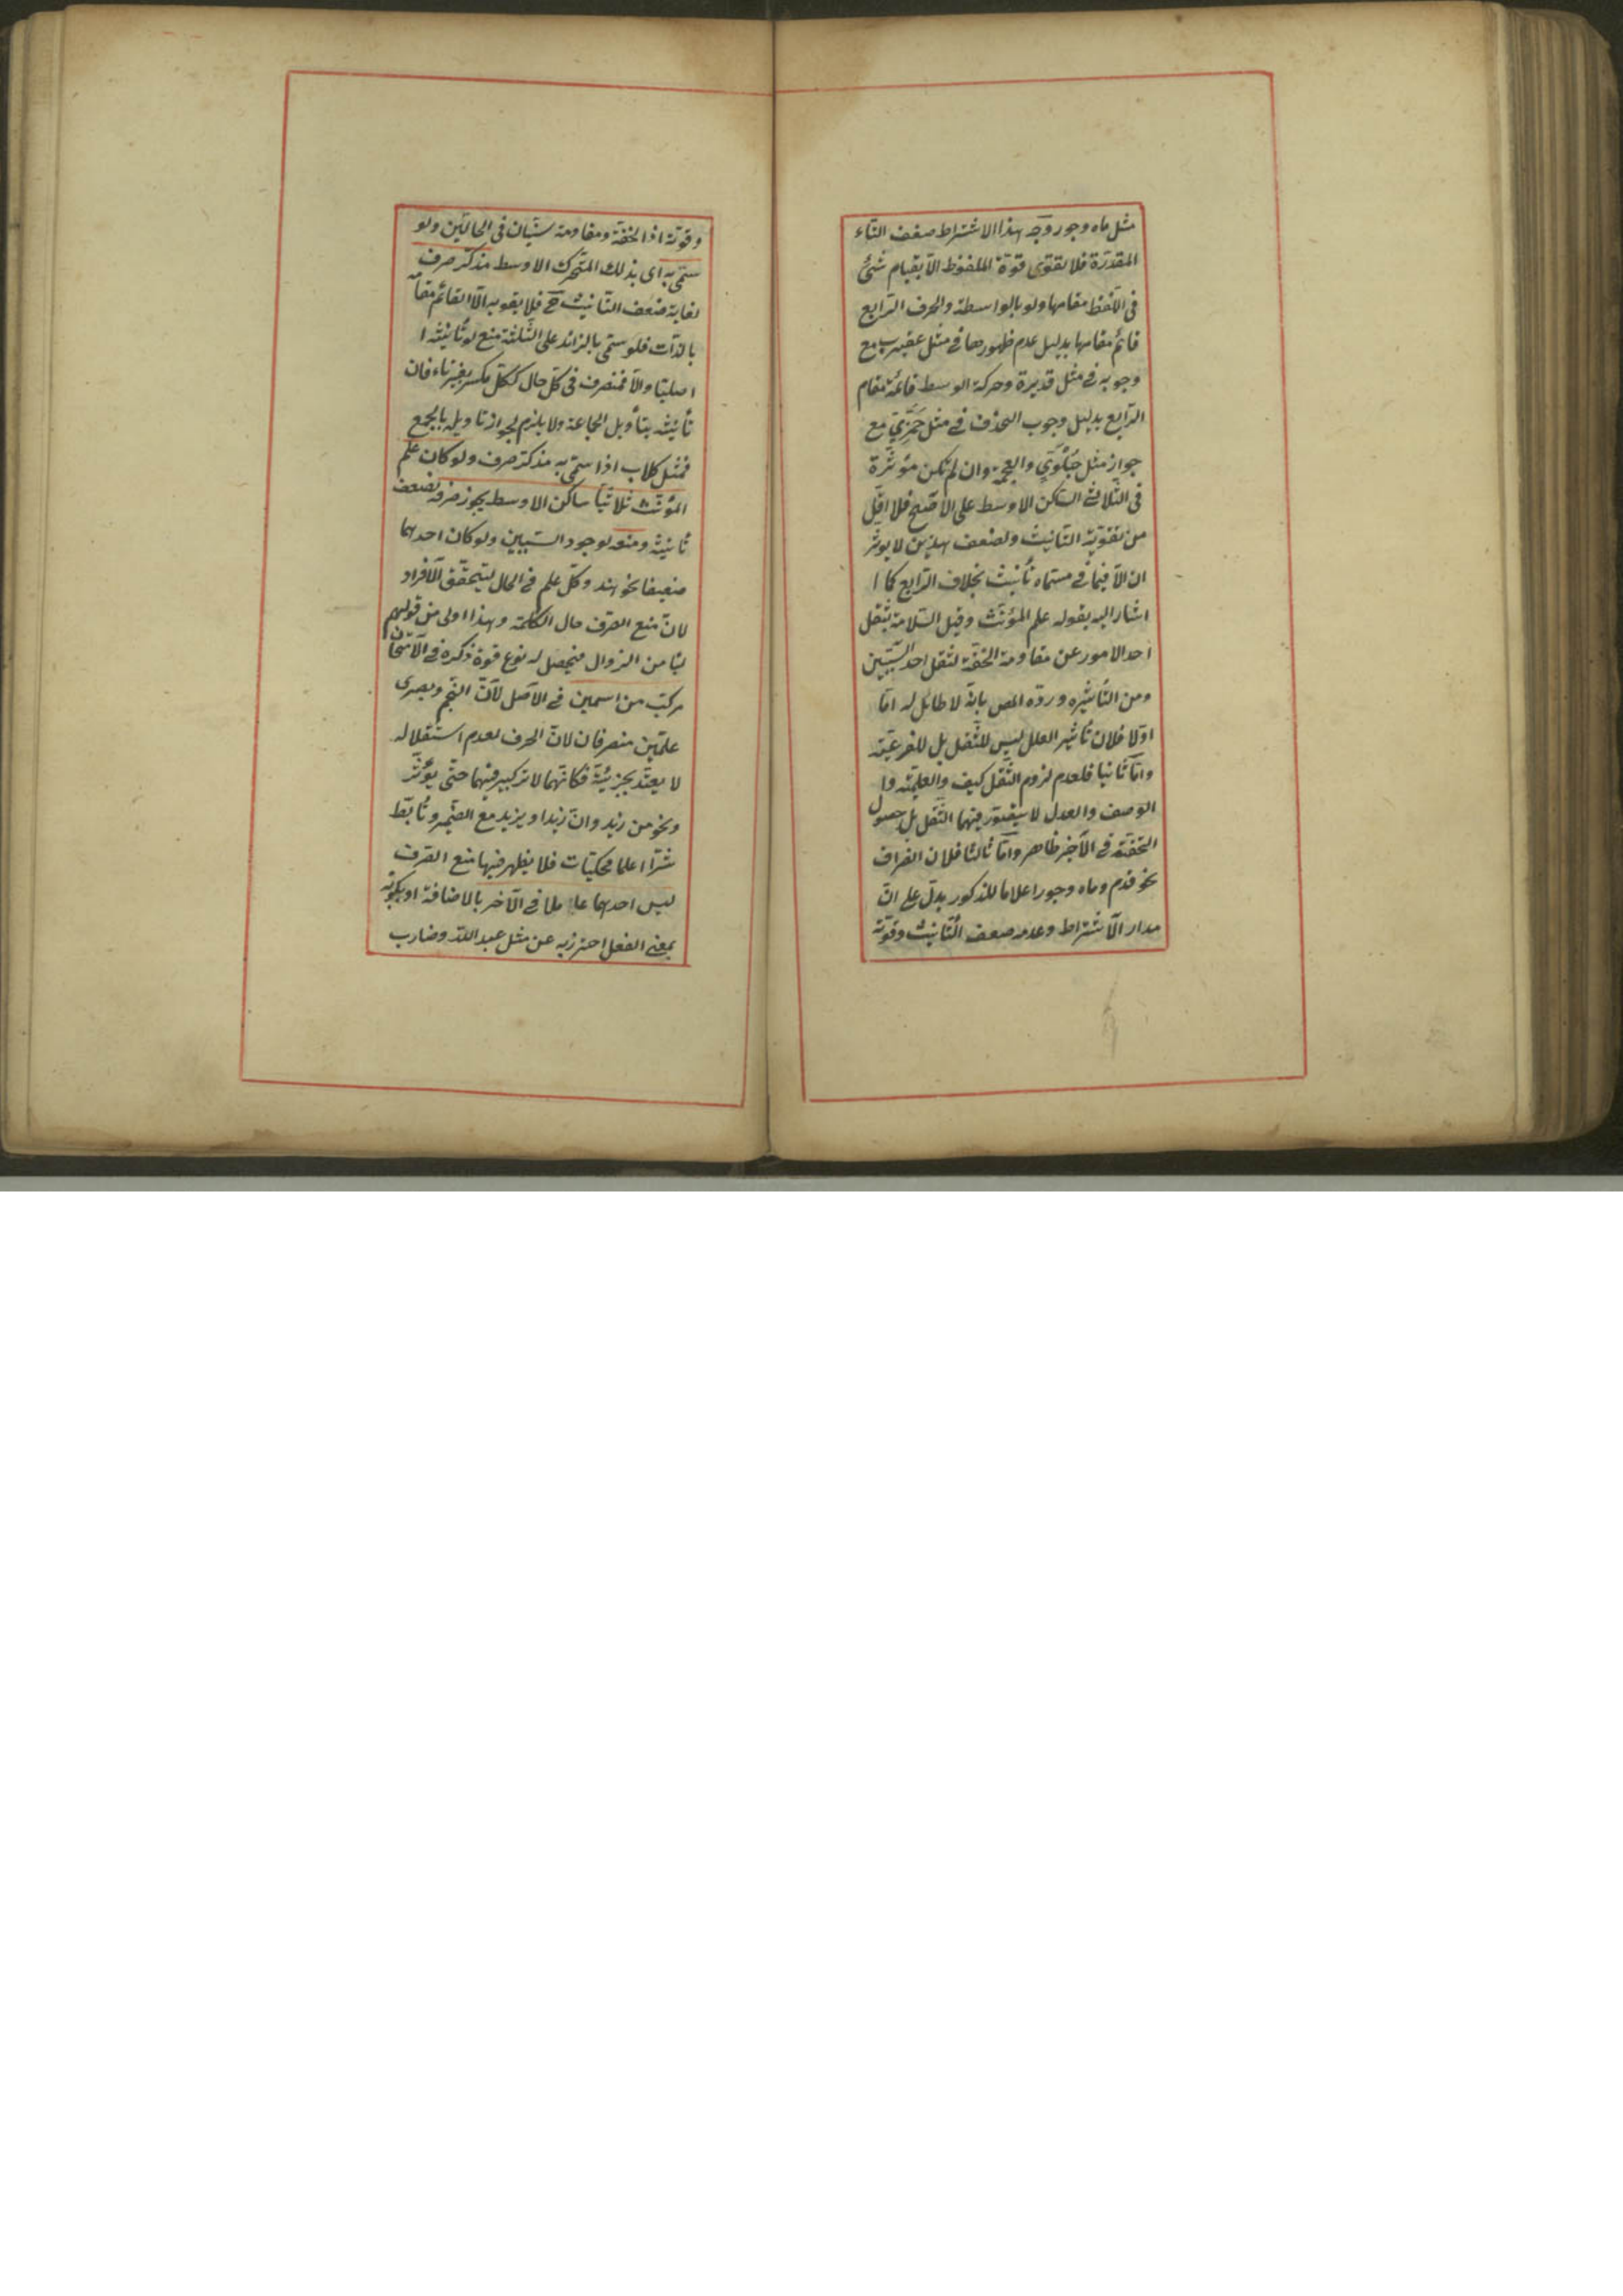 مثل ماه وجور وجه هذا الاشتراط ضعف التاء
المقدرة فلا تقوى قوة الملفوظ الا بقيام شئ
فى اللفظ مقامها ولو بالواسطة والحرف الرابع
قائم مقامها بدليل عدم ظهورها فى مثل عقيرب مع
وجوبه فى مثل قديرة وحركة الوسط قائمة مقام
الرابع بدليل وجوب الحذف فى مثل جمزى مع
جواز مثل حبلوى والعجمة وان لم تكن مؤثرة
فى الثلاثى الساكن الاوسط على الاصح فلا اقل
من تقوية التانيث ولضعف هذين لا يوثر
ان الا فيما فى مسماه تأنيث بخلاف الرابع كما ا
اشار اليه بقوله علم المؤنث وقيل السلامة بثقل
احد الامور عن مقاومة الخفة لثقل احد السببين
ومن التأثيره ورده المص بانه لا طائل له اما
اولا فلان تأثير العلل ليس للثقل بل للفرعية
واما ثانيا فلعدم لزوم الثقل كيف والعلمية وا
الوصف والعدل لا يتصور فيهما الثقل بل حصول
الخفة فى الاخير ظاهر واما ثالثا فلان انصراف
نحو قدم وماه وجور اعلاما للذكور يدل على ان
مدار الاشتراط وعدمه ضعف التأنيث وقوته
وقوته اذ الخفة ومقاومة سيان فى الحالتين ولو
سمى به اى بذلك المتحرك الاوسط مذكر صرف
لغاية ضعف التأنيث ح فلا يقويه الا القائم مقامه
بالذات فلو سمى بالزائد على الثلثة منع لو تأنيثه ا
اصليا والا فمنصرف فى كل حال ككل مكسر بغير تاء فان
تأنيثه بتأويل الجماعة ولا يلزم لجواز تاويله بالجمع
فمثل كلاب اذا سمى به مذكر صرف ولو كان علم
المؤنث ثلاثيا ساكن الاوسط يجوز صرفه لضعف
تأنيثه ومنعه لوجود السببين ولو كان احدهما
ضعيفا نحو هند وكل علم فى الحال ليتحقق الافراد
لان منع الصرف حال الكلمة وهذا اولى من قولهم
لئا من الزوال فيحصل له نوع قوة ذكره فى الامتحان
مركب من اسمين فى الاصل لان النجم وبصرى
علمين منصرفان لان الحرف لعدم استقلاله
لا يعتد بجزئيته فكانهما لا تركيب فيهما حتى يؤثر
ونحو من زيد وان زيدا ويزيد مع الضمير وتأبط
شرا اعلما محكيات فلا يظهر فيها منع الصرف
ليس احدهما عاملا فى الآخر بالاضافة او بكونه
بمعنى الفعل احترز به عن مثل عبد الله وضارب